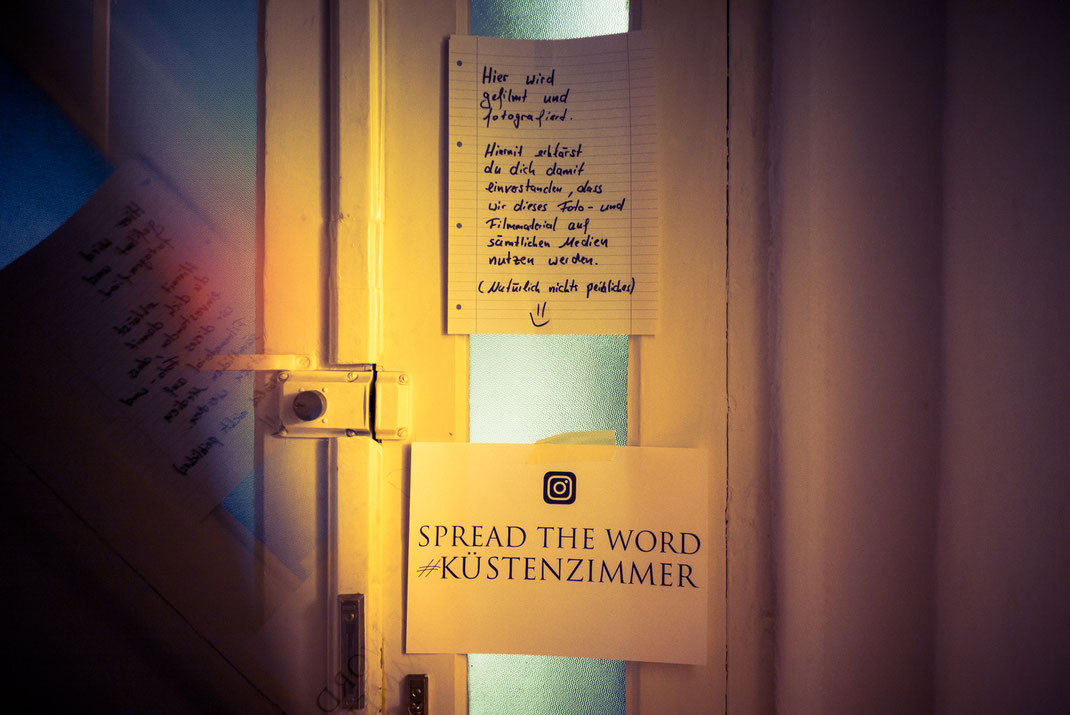 Hier wird
gefilmt und
fotografiert.
Hiermit erklärst
du dich damit
einverstanden, dass
wir dieses Foto- und
Filmmaterial auf
sämtlichen Medien
nutzen werden.
(Natürlich nichts peinliches)
SPREAD THE WORD
#KÜSTENZIMMER